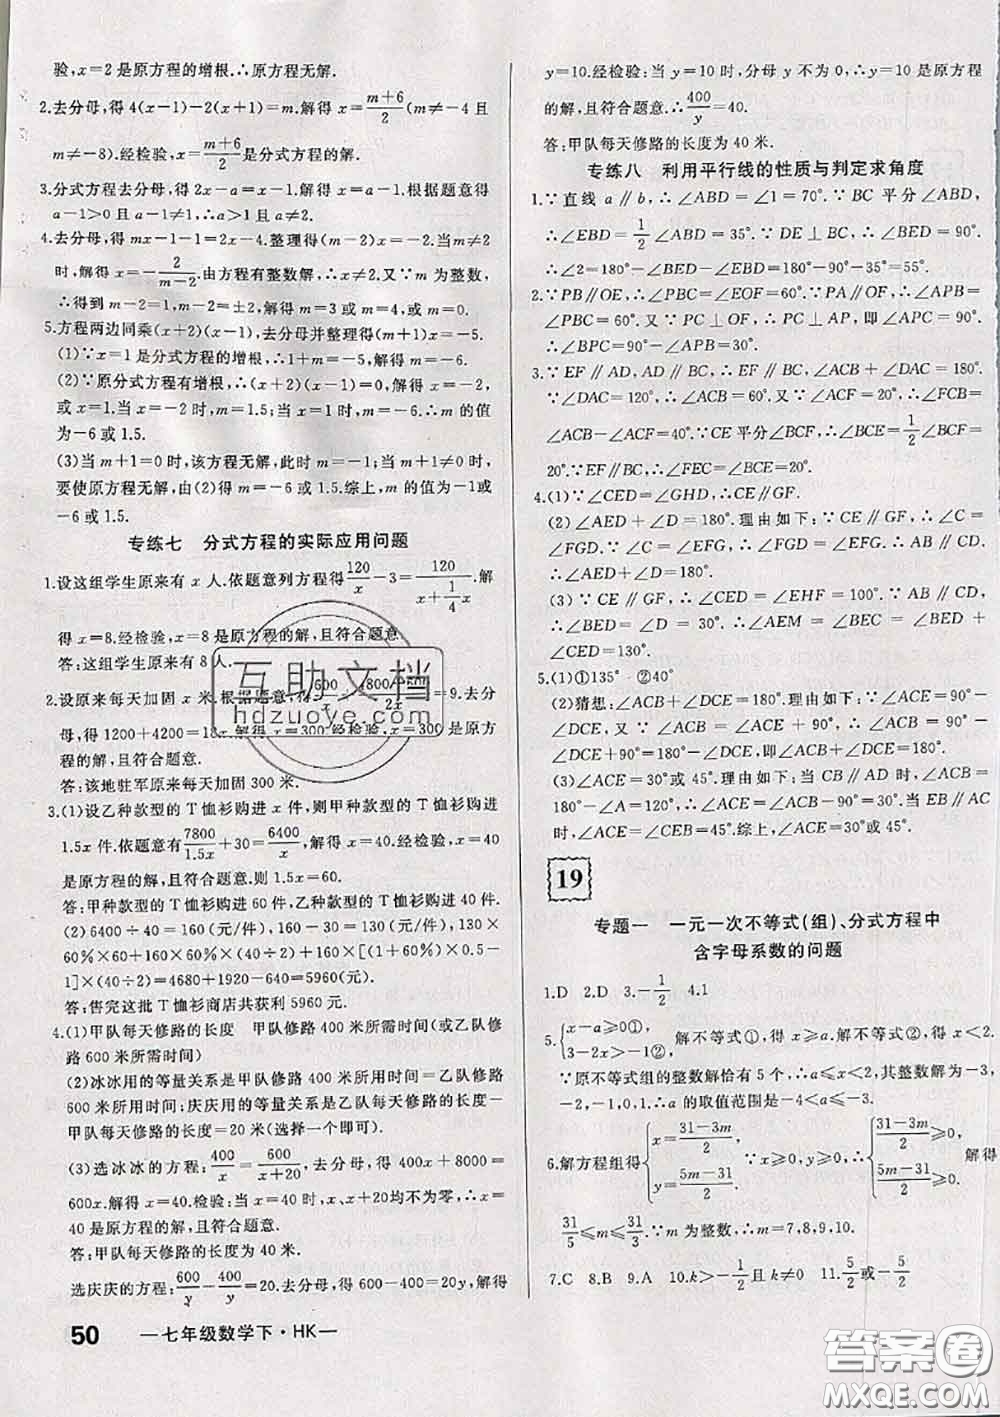 验,x=2是原方程的增根.∴原方程无解.
2.去分母,得4(x-1)-2(x+1)=m.解得x=(m+6)/2(m≠-4且
m≠-8).经检验,x=(m+6)/2是分式方程的解.
3.分式方程去分母,得2x-a=x-1.解得x=a-1.根据题意得
a-1>0且a-1≠1,∴a>1且a≠2.
4.去分母,得mx-1-1=2x-4.整理得(m-2)x=-2.当m≠2
时,解得x=-2/(m-2).由方程有整数解,∴x≠2.又∵m为整数,
∴得到m-2=-2,m-2=±2,解得m=3或m=4,m=0.
5.方程两边同乘(x+2)(x-1),去分母并整理得(m+1)x=-5.
(1)∵x=1是分式方程的增根,∴1+m=-5,解得m=-6.
(2)∵原分式方程有增根,∴(x+2)(x-1)=0,解得x=-2,
或x=1.当x=-2时,m=1.5;当x=1时,m=-6.∴m的值
为-6或1.5.
(3)当m+1=0时,该方程无解,此时m=-1;当m+1≠0时,
要使原方程无解,由(2)得m=-6或1.5.综上,m的值为-1或
-6或1.5.
专练七 分式方程的实际应用问题
1.设这组学生原来有x人.依题意列方程得120/x-3=120/(x+1/4x).解
得x=8.经检验,x=8是原方程的解,且符合题意.
答:这组学生原来有8人.
2.设原来每天加固x米.根据题意,得600/x+(4800-600)/2x=9.去分
母,得1200+4200=18x.解得x=300.经检验,x=300是原方程
的解,且符合题意.
答:该地驻军原来每天加固300米.
3.(1)设乙种款型的T恤衫购进x件,则甲种款型的T恤衫购进
1.5x件.依题意得7800/1.5x+30=6400/x,解得x=40.经检验,x=40
是原方程的解,且符合题意.则1.5x=60.
答:甲种款型的T恤衫购进60件,乙种款型的T恤衫购进40件.
(2)6400÷40=160(元/件),160-30=130(元/件),130×
60%×60+160×60%×(40÷2)-160×[1-(1+60%)×0.5
]×(40÷2)=4680+1920-640=5960(元).
答:售完这批T恤衫商店共获利5960元.
4.(1)甲队每天修路的长度 甲队修路400米所需时间(或乙队修
路600米所需时间)
(2)冰冰用的等量关系是甲队修路400米所用时间=乙队修路
600米所用时间;庆庆用的等量关系是乙队每天修路的长度-
甲队每天修路的长度=20米(选择一个即可).
(3)选冰冰的方程:400/x=600/(x+20),去分母,得400x+8000=
600x.解得x=40.检验:当x=40时,x、x+20均不为零,∴x=
40是原方程的解,且符合题意.
答:甲队每天修路的长度为40米.
选庆庆的方程:600/y-400/y=20.去分母,得600-400=20y,解得
50 —七年级数学下·HK—
y=10.经检验:当y=10时,分母y不为0,∴y=10是原方程
的解,且符合题意.∴400/y=40.
答:甲队每天修路的长度为40米.
专练八 利用平行线的性质与判定求角度
1.∵直线a∥b,∴∠ABD=∠1=70°.∵BC平分∠ABD,
∴∠EBD=1/2∠ABD=35°.∵DE⊥BC,∴∠BED=90°.
∴∠2=180°-∠BED-∠EBD=180°-90°-35°=55°.
2.∵PB∥OE,∴∠PBC=∠EOF=60°.∵PA∥OF,∴∠APB=
∠PBC=60°.又∵PC⊥OF,∴PC⊥AP,即∠APC=90°.
∴∠BPC=90°-∠APB=30°.
3.∵EF∥AD,AD∥BC,∴EF∥BC,∠ACB+∠DAC=180°.
∵∠DAC=120°,∴∠ACB=60°.又∵∠ACF=20°,∴∠FCB=
∠ACB-∠ACF=40°.∵CE平分∠BCF,∴∠BCE=1/2∠BCF=
20°.∵EF∥BC,∴∠FEC=∠BCE=20°.
4.(1)∵∠CED=∠GHD,∴CE∥GF.
(2)∠AED+∠D=180°.理由如下:∵CE∥GF,∴∠C=
∠FGD.又∵∠C=∠EFG,∴∠FGD=∠EFG.∴AB∥CD.
∴∠AED+∠D=180°.
(3)∵CE∥GF,∴∠CED=∠EHF=100°.∵AB∥CD,
∴∠BED=∠D=30°.∴∠CEB=∠CED+∠BED=130°.∴
∠AEC=180°-∠CEB=50°.
5.(1)①135° ②40°
(2)猜想:∠ACB+∠DCE=180°.理由如下:∵∠ACE=90°-
∠DCE,又∵∠ACB=∠ACE+90°,∴∠ACB=90°-
∠DCE+90°=180°-∠DCE,即∠ACB+∠DCE=180°.
(3)∠ACE=30°或45°.理由:当CB∥AD时,∠ACE=∠ACB
-90°=180°-∠A-90°=180°-60°-90°=30°.当EB∥AC
时,∠ACE=∠CEB=45°.综上,∠ACE=30°或45°.
19
专题一 一元一次不等式(组)、分式方程中
含字母系数的问题
1.D 2.D 3.-1/2 4.1
5.{x-a≥0①, 3-2x>-1②, 解不等式①,得x≥a.解不等式②,得x<2.
∵原不等式组的整数解恰有5个,∴a≤x<2,其整数解为-3,
-2,-1,0,1.∴a的取值范围是-4<a≤-3.
6.解方程组得{x=(31-3m)/2, y=(5m-31)/2. ∵x≥0,y≥0,∴{(31-3m)/2≥0, (5m-31)/2≥0, 解得
31/5≤m≤31/3.∵m为整数,∴m=7,8,9,10.
7.C 8.B 9.A 10.k>-1/2且k≠0 11.5/2或-5/2
互助文档
hdzuoye.com
答案圈
MXQE.COM